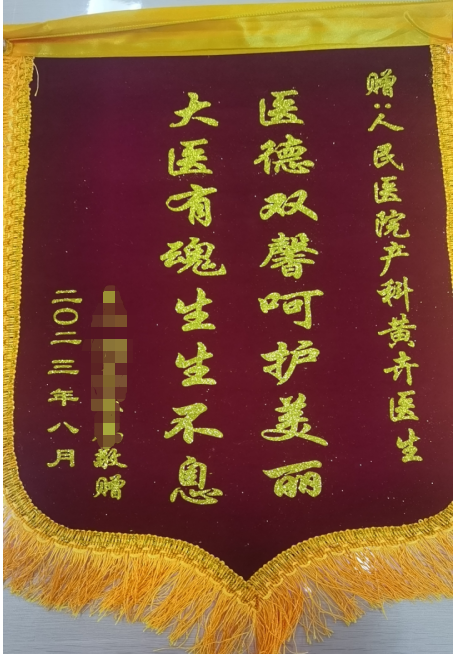 赠:人民医院产科黄卉医生
医德双馨呵护美丽
大医有魂生生不息
敬赠
二〇二三年八月